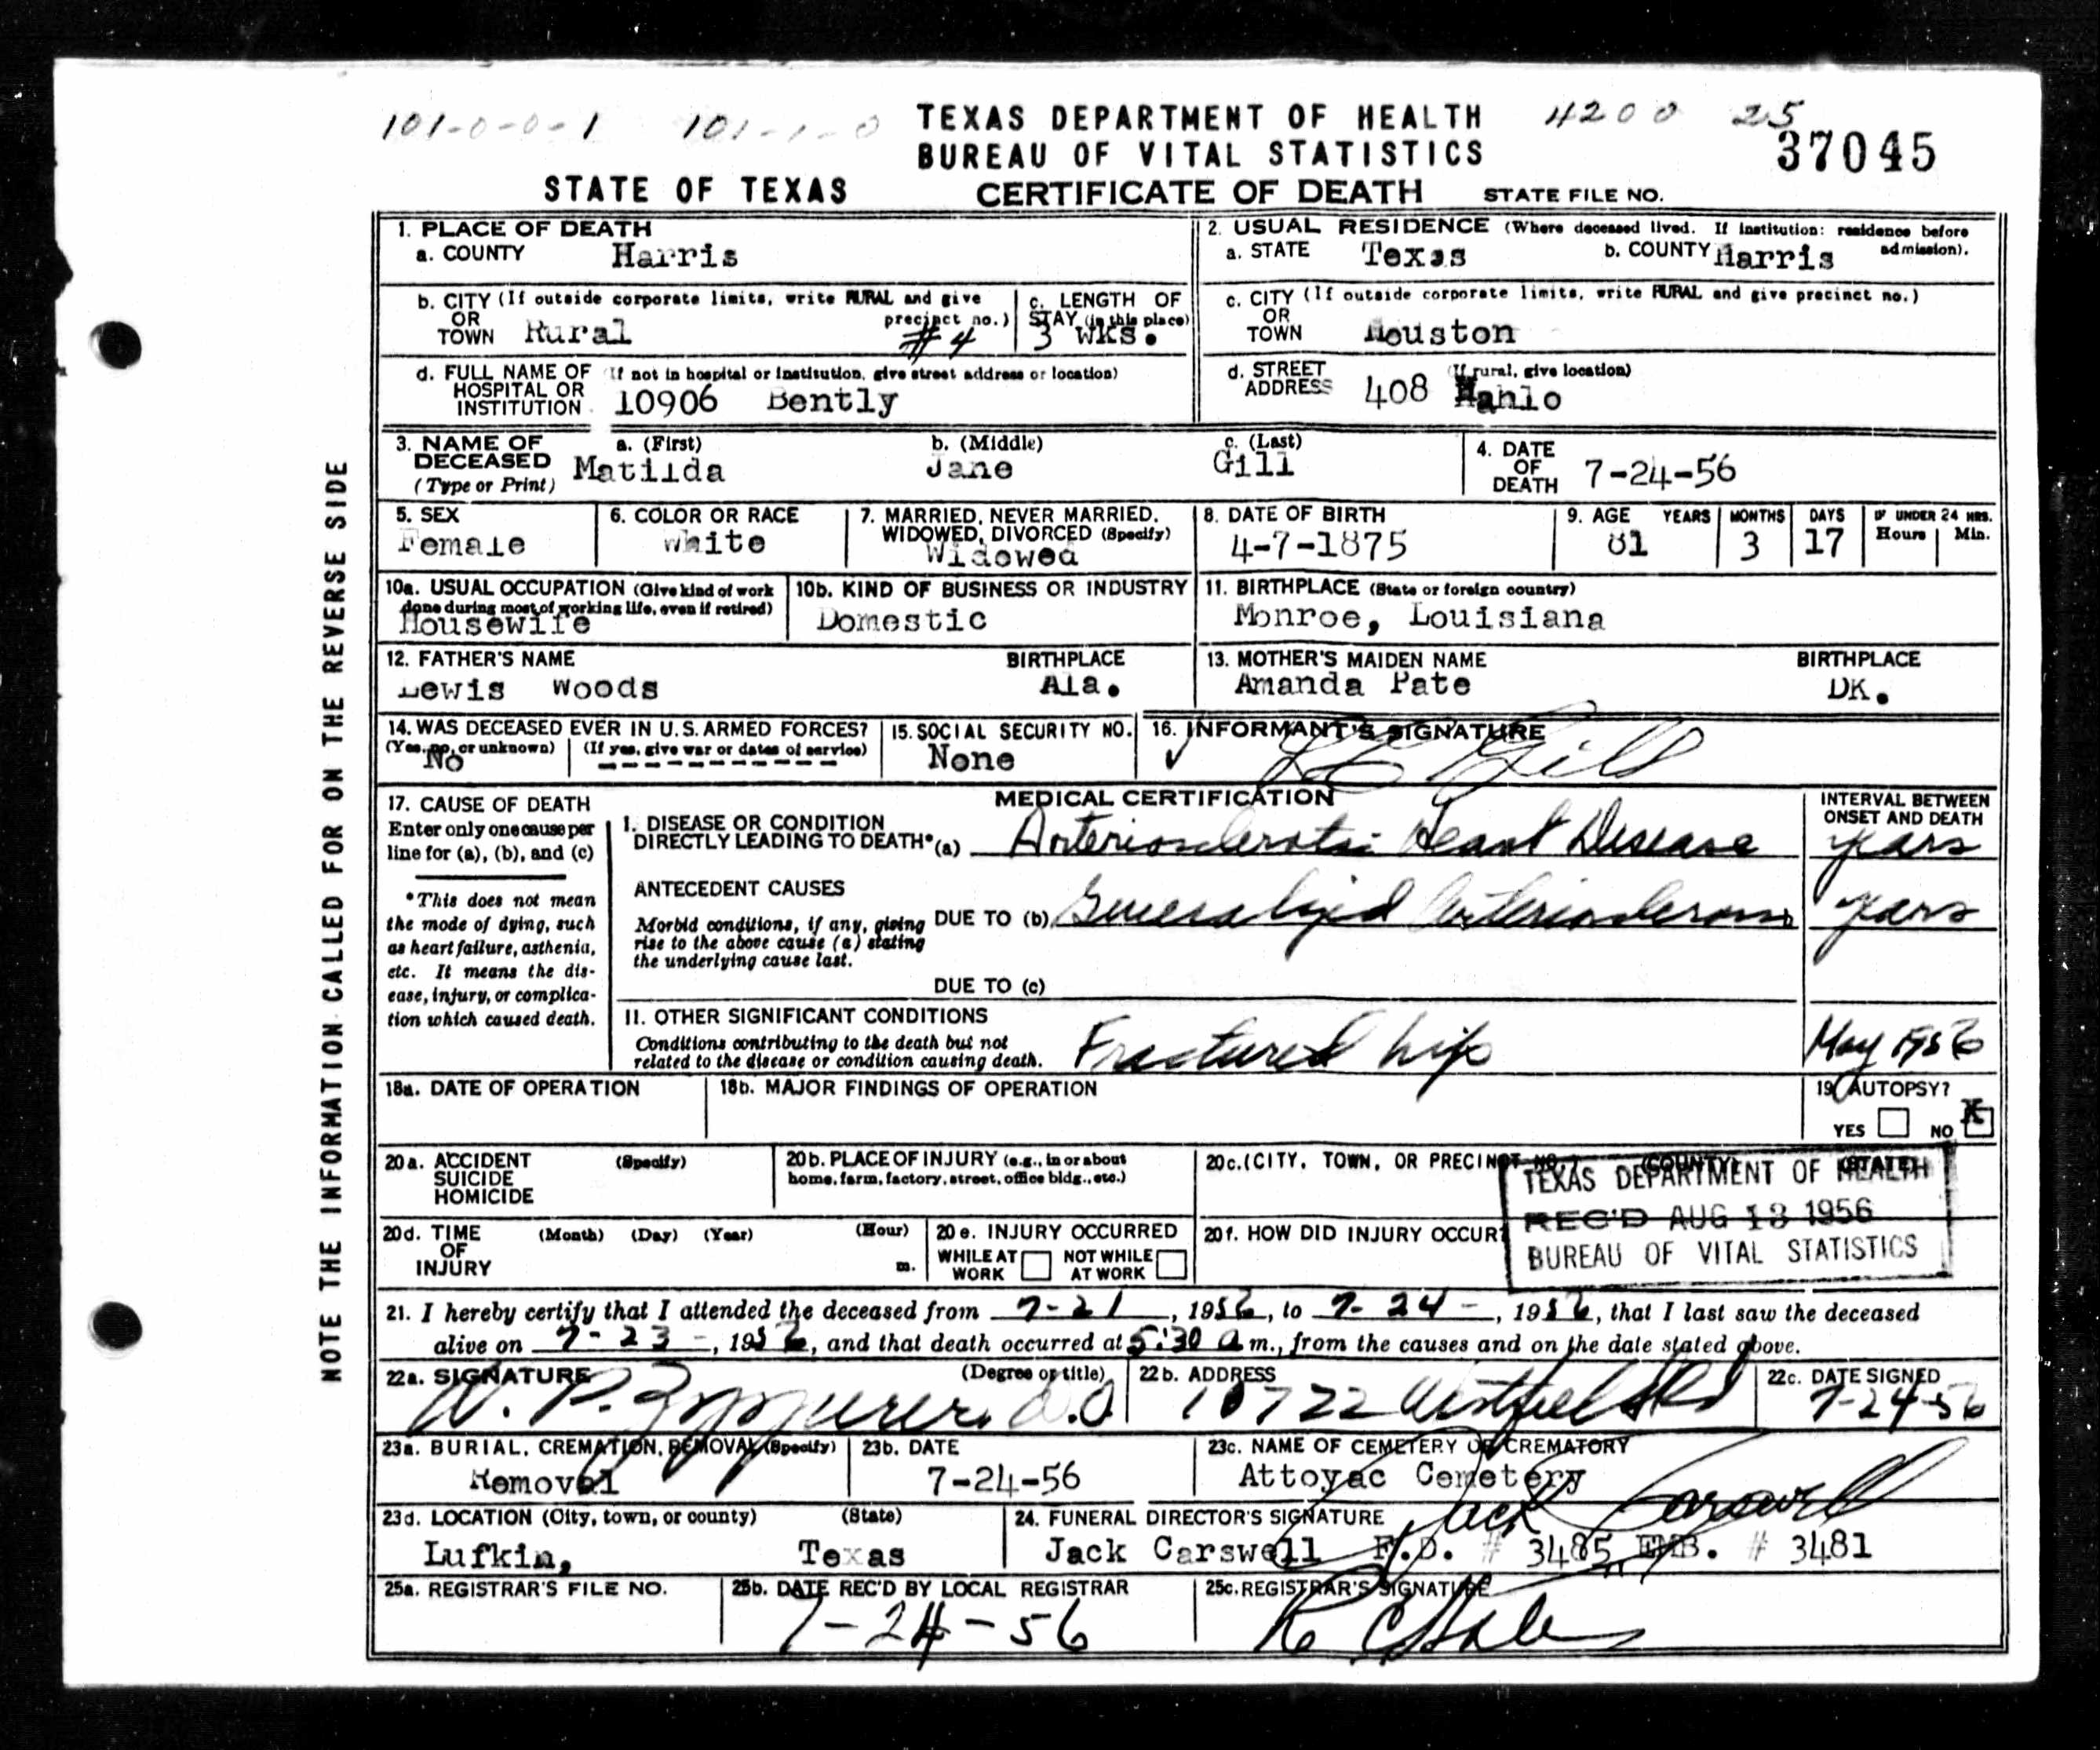 101-0-0-1 101-1-0 TEXAS DEPARTMENT OF HEALTH 4200 25
BUREAU OF VITAL STATISTICS 37045
STATE OF TEXAS CERTIFICATE OF DEATH STATE FILE NO.
1. PLACE OF DEATH
a. COUNTY Harris
2. USUAL RESIDENCE (Where deceased lived. If institution: residence before admission).
a. STATE Texas b. COUNTY Harris
b. CITY (If outside corporate limits, write RURAL and give precinct no.)
OR
TOWN Rural #4
c. LENGTH OF
STAY (in this place)
3 wks.
c. CITY (If outside corporate limits, write RURAL and give precinct no.)
OR
TOWN Houston
d. FULL NAME OF (If not in hospital or institution, give street address or location)
HOSPITAL OR
INSTITUTION 10906 Bently
d. STREET (If rural, give location)
ADDRESS 408 Hahlo
3. NAME OF DECEASED (Type or Print)
a. (First) Matilda
b. (Middle) Jane
c. (Last) Gill
4. DATE OF DEATH 7-24-56
5. SEX
Female
6. COLOR OR RACE
White
7. MARRIED, NEVER MARRIED,
WIDOWED, DIVORCED (Specify)
Widowed
8. DATE OF BIRTH
4-7-1875
9. AGE YEARS MONTHS DAYS IF UNDER 24 HRS.
Hours Min.
81 3 17
10a. USUAL OCCUPATION (Give kind of work
done during most of working life, even if retired)
Housewife
10b. KIND OF BUSINESS OR INDUSTRY
Domestic
11. BIRTHPLACE (State or foreign country)
Monroe, Louisiana
12. FATHER'S NAME BIRTHPLACE
Lewis Woods Ala.
13. MOTHER'S MAIDEN NAME BIRTHPLACE
Amanda Pate DK.
14. WAS DECEASED EVER IN U.S. ARMED FORCES?
(Yes, no, or unknown) (If yes, give war or dates of service)
No
15. SOCIAL SECURITY NO.
None
16. INFORMANT'S SIGNATURE
L E Gill
17. CAUSE OF DEATH
Enter only one cause per
line for (a), (b), and (c)
*This does not mean
the mode of dying, such
as heart failure, asthenia,
etc. It means the dis-
ease, injury, or complica-
tion which caused death.
MEDICAL CERTIFICATION
INTERVAL BETWEEN
ONSET AND DEATH
I. DISEASE OR CONDITION
DIRECTLY LEADING TO DEATH* (a) Arteriosclerotic Heart Disease years
ANTECEDENT CAUSES
Morbid conditions, if any, giving
rise to the above cause (a) stating
the underlying cause last.
DUE TO (b) Generalized Arteriosclerosis years
DUE TO (c)
II. OTHER SIGNIFICANT CONDITIONS
Conditions contributing to the death but not
related to the disease or condition causing death.
Fractured hip May 1956
18a. DATE OF OPERATION
18b. MAJOR FINDINGS OF OPERATION
19. AUTOPSY?
YES NO X
20a. ACCIDENT (Specify)
SUICIDE
HOMICIDE
20b. PLACE OF INJURY (e.g., in or about
home, farm, factory, street, office bldg., etc.)
20c. (CITY, TOWN, OR PRECINCT NO.) (COUNTY) (STATE)
TEXAS DEPARTMENT OF HEALTH
REC'D AUG 13 1956
BUREAU OF VITAL STATISTICS
20d. TIME (Month) (Day) (Year) (Hour)
OF
INJURY m.
20e. INJURY OCCURRED
WHILE AT WORK NOT WHILE AT WORK
20f. HOW DID INJURY OCCUR?
21. I hereby certify that I attended the deceased from 7-21, 1956, to 7-24-, 1956, that I last saw the deceased
alive on 7-23-, 1956, and that death occurred at 5:30 a m., from the causes and on the date stated above.
22a. SIGNATURE (Degree or title)
W. P. D.O.
22b. ADDRESS
10722
22c. DATE SIGNED
7-24-56
23a. BURIAL, CREMATION, REMOVAL (Specify)
Removal
23b. DATE
7-24-56
23c. NAME OF CEMETERY OR CREMATORY
Attoyac Cemetery
23d. LOCATION (City, town, or county) (State)
Lufkin, Texas
24. FUNERAL DIRECTOR'S SIGNATURE
Jack Carswell
Jack Carswell F.D. # 3485 EMB. # 3481
25a. REGISTRAR'S FILE NO.
25b. DATE REC'D BY LOCAL REGISTRAR
7-24-56
25c. REGISTRAR'S SIGNATURE
NOTE THE INFORMATION CALLED FOR ON THE REVERSE SIDE